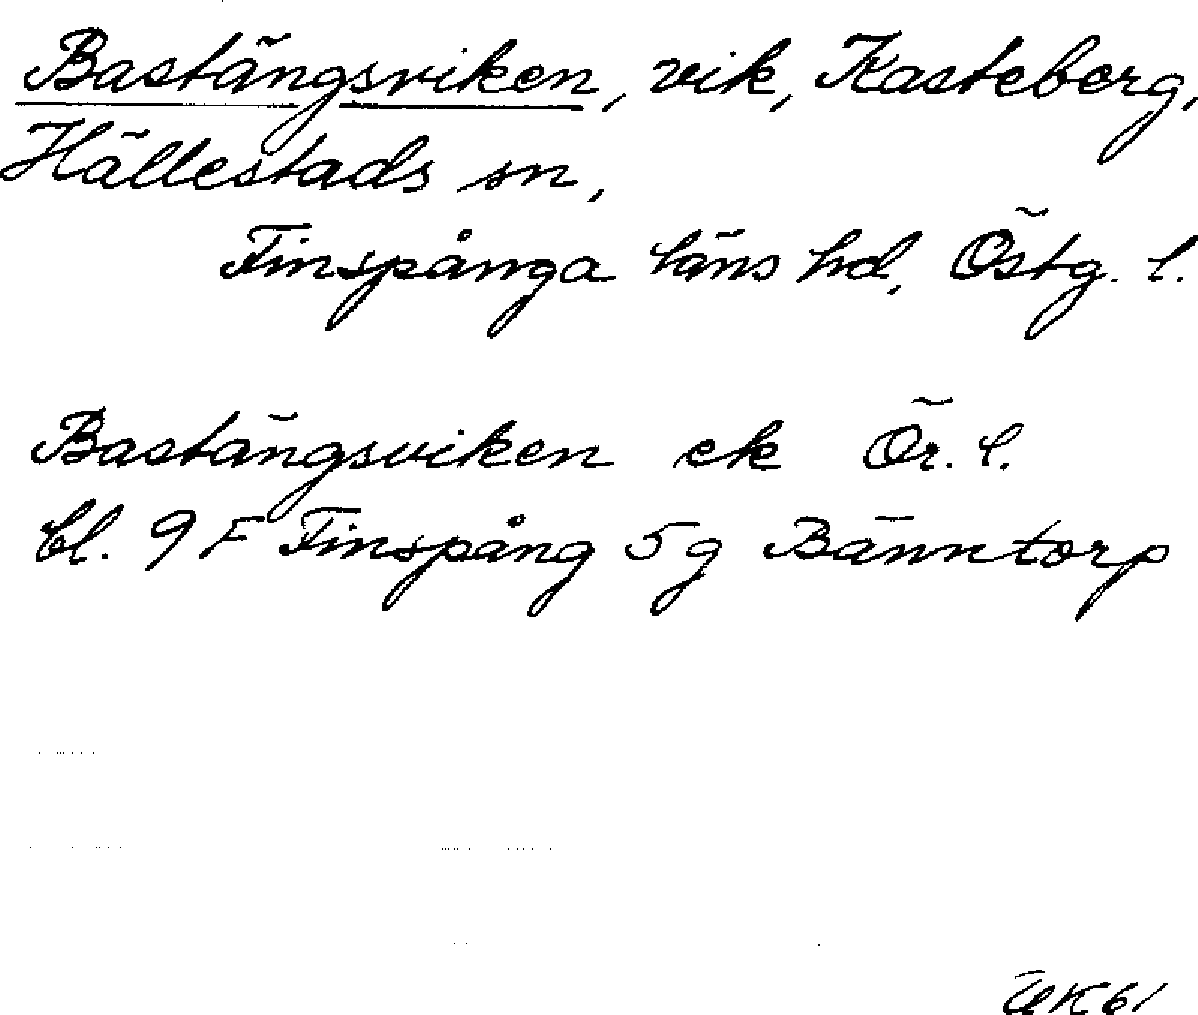 Bastängsviken, vik, Kasteberg,
Hällestads sn,
Finspånga läns hd, Östg. l.
Bastängsviken ek Ör. l.
bl. 9 F Finspång 5 g Bänntorp
ÄK 61